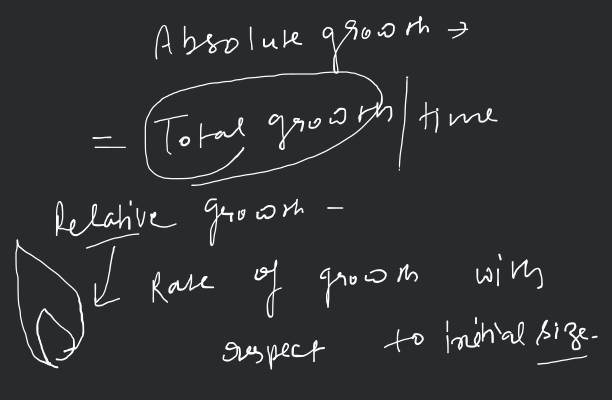 Absolute growth →
= Total growth / time
Relative growth -
Rate of growth with
respect to initial size.